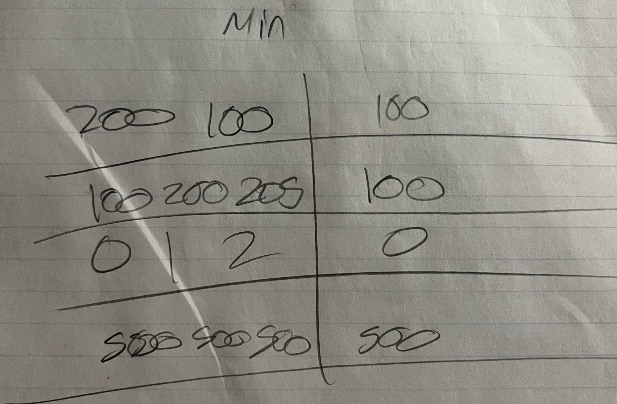 Min
200 100 100
100 200 205 100
0 1 2 0
500 500 500